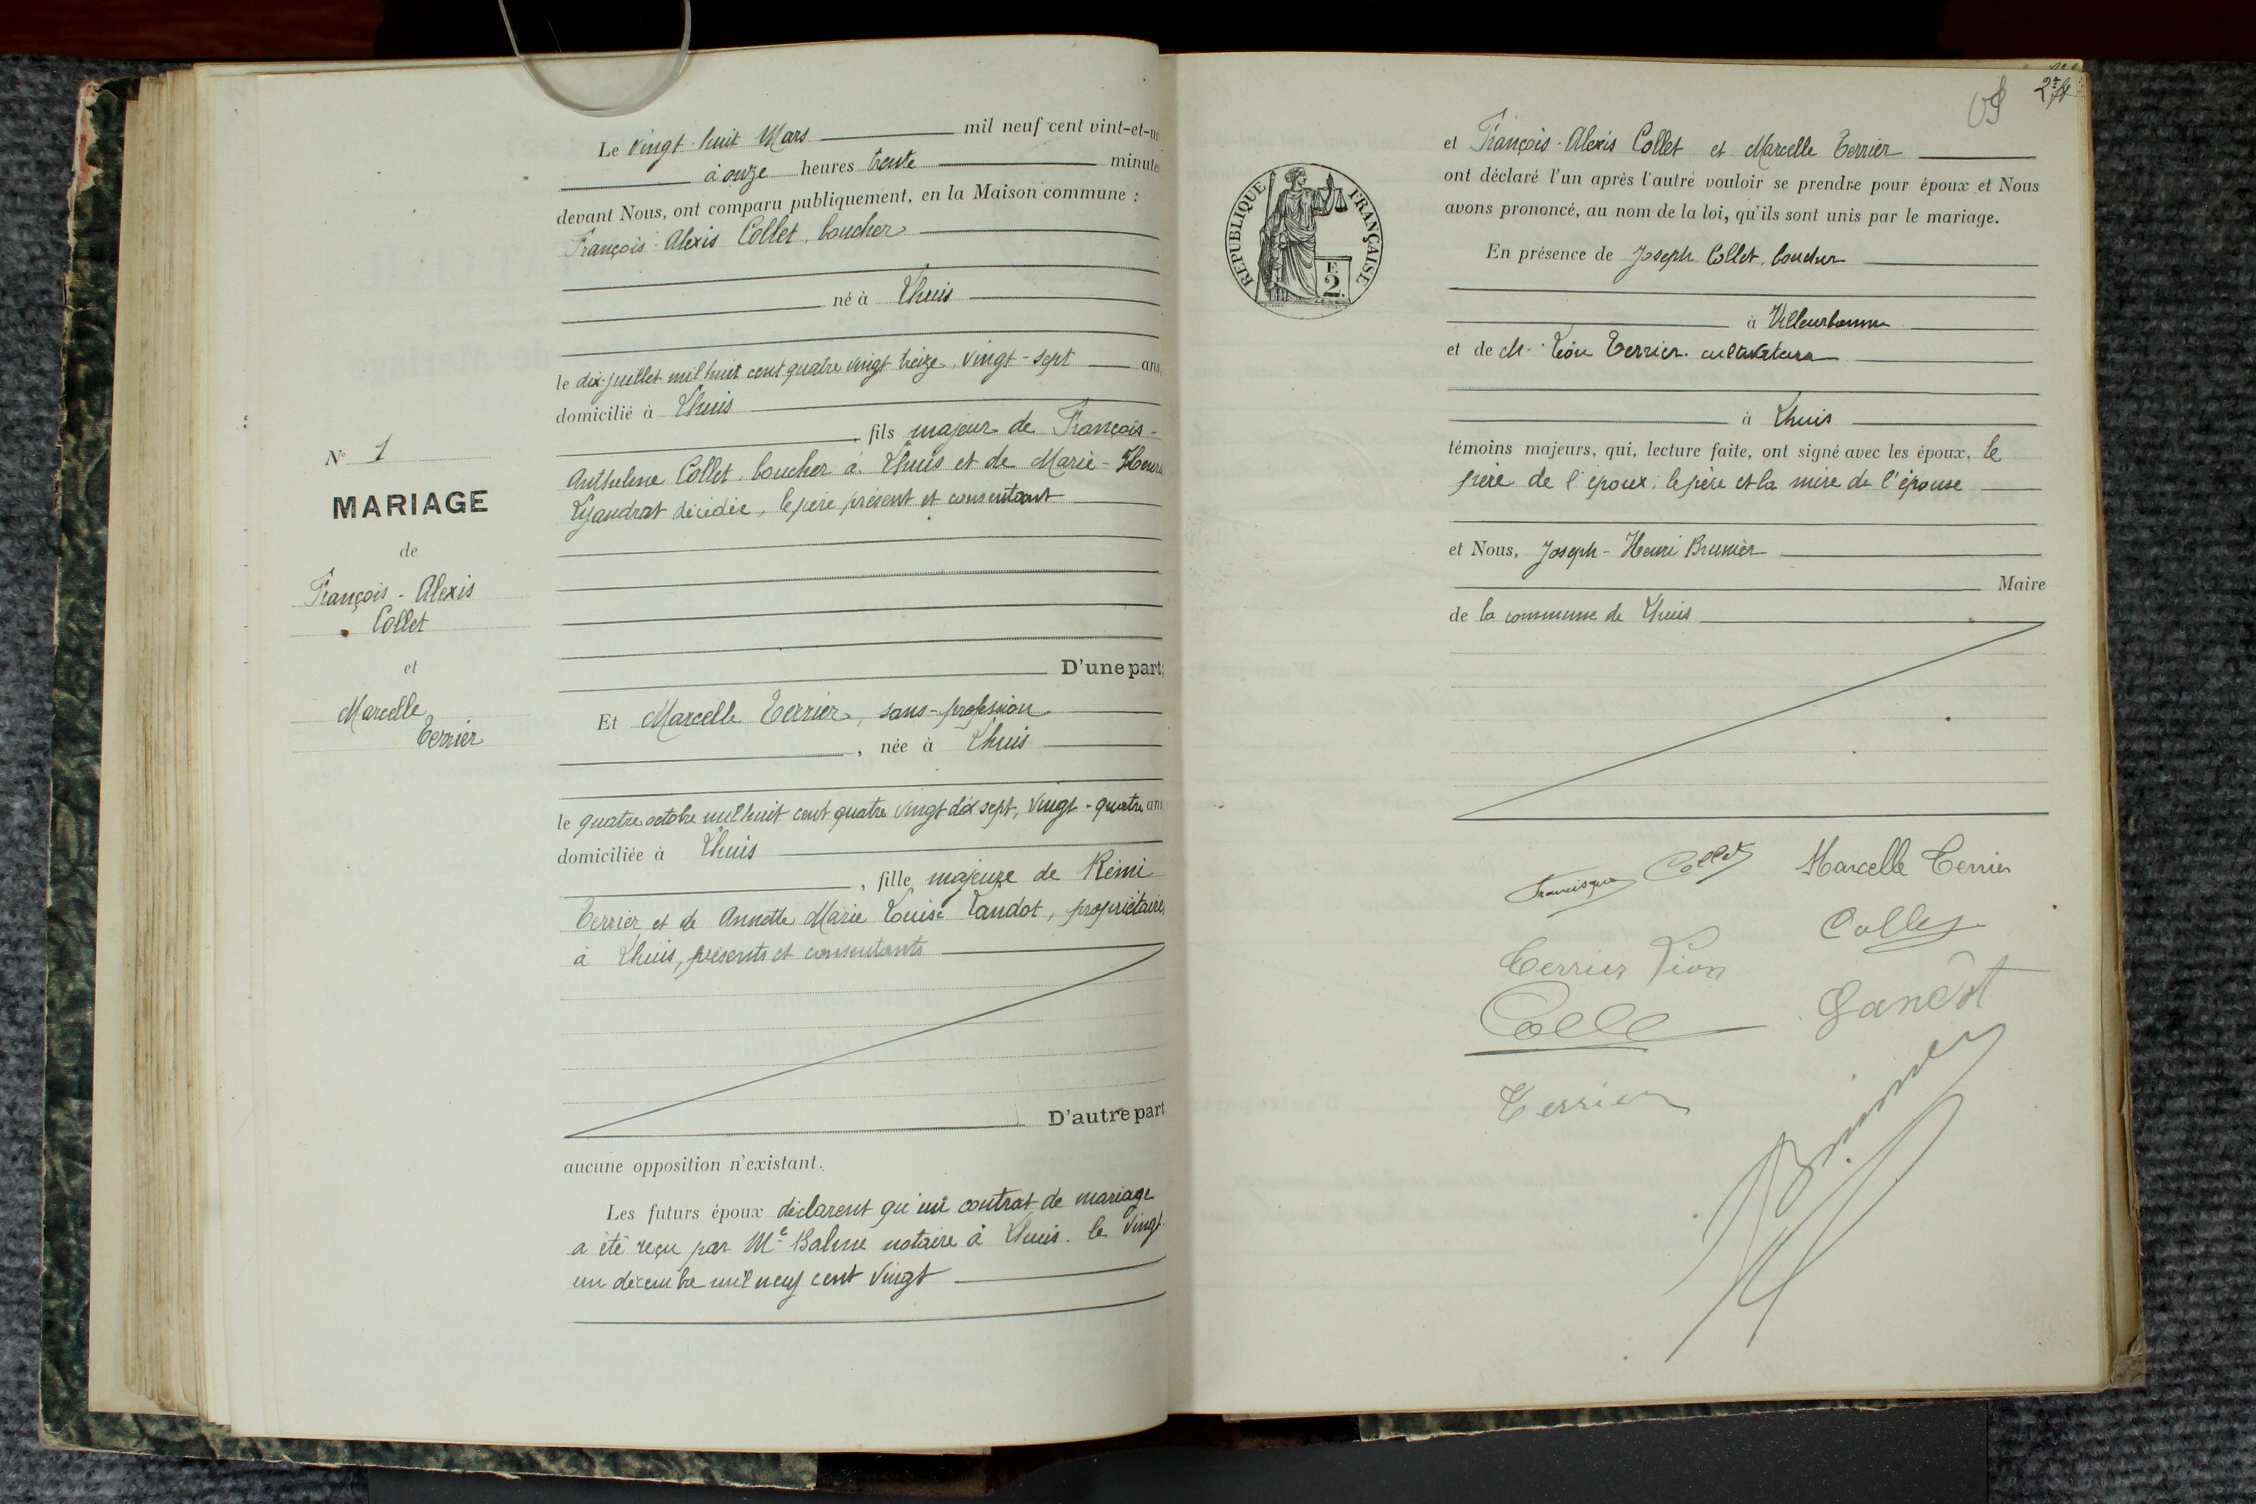 Le vingt-huit Mars mil neuf cent vint-et-un
à onze heures trente minutes
devant Nous, ont comparu publiquement, en la Maison commune :
François-Alexis Collet, boucher
né à Lhuis
le dix juillet mil huit cent quatre vingt treize, vingt-sept ans,
domicilié à Lhuis
, fils majeur de François-
Anthelme Collet, boucher à Lhuis et de Marie-
décédée, le père présent et consentant
N° 1
MARIAGE
de
François-Alexis
Collet
et
Marcelle
Terrier
D'une part;
Et Marcelle Terrier, sans-profession
, née à Lhuis
le quatre octobre mil huit cent quatre vingt dix sept, vingt-quatre ans
domiciliée à Lhuis
, fille majeure de Rémi
Terrier et de Annette Marie Louise Landot, propriétaires
à Lhuis, présents et consentants
D'autre part
aucune opposition n'existant.
Les futurs époux déclarent qu'un contrat de mariage
a été reçu par Me Balme notaire à Lhuis, le vingt
un décembre mil neuf cent vingt
RÉPUBLIQUE FRANÇAISE
F.
2
et François-Alexis Collet et Marcelle Terrier
ont déclaré l'un après l'autre vouloir se prendre pour époux et Nous
avons prononcé, au nom de la loi, qu'ils sont unis par le mariage.
En présence de Joseph Collet, boucher
à Villeurbanne
et de M. Léon Terrier, cultivateur
à Lhuis
témoins majeurs, qui, lecture faite, ont signé avec les époux, le
père de l'époux, le père et la mère de l'épouse
et Nous, Joseph-Henri Brunier
Maire
de la commune de Lhuis
Francisque Collet Marcelle Terrier
Collet
Terrier Léon
Landot
Terrier